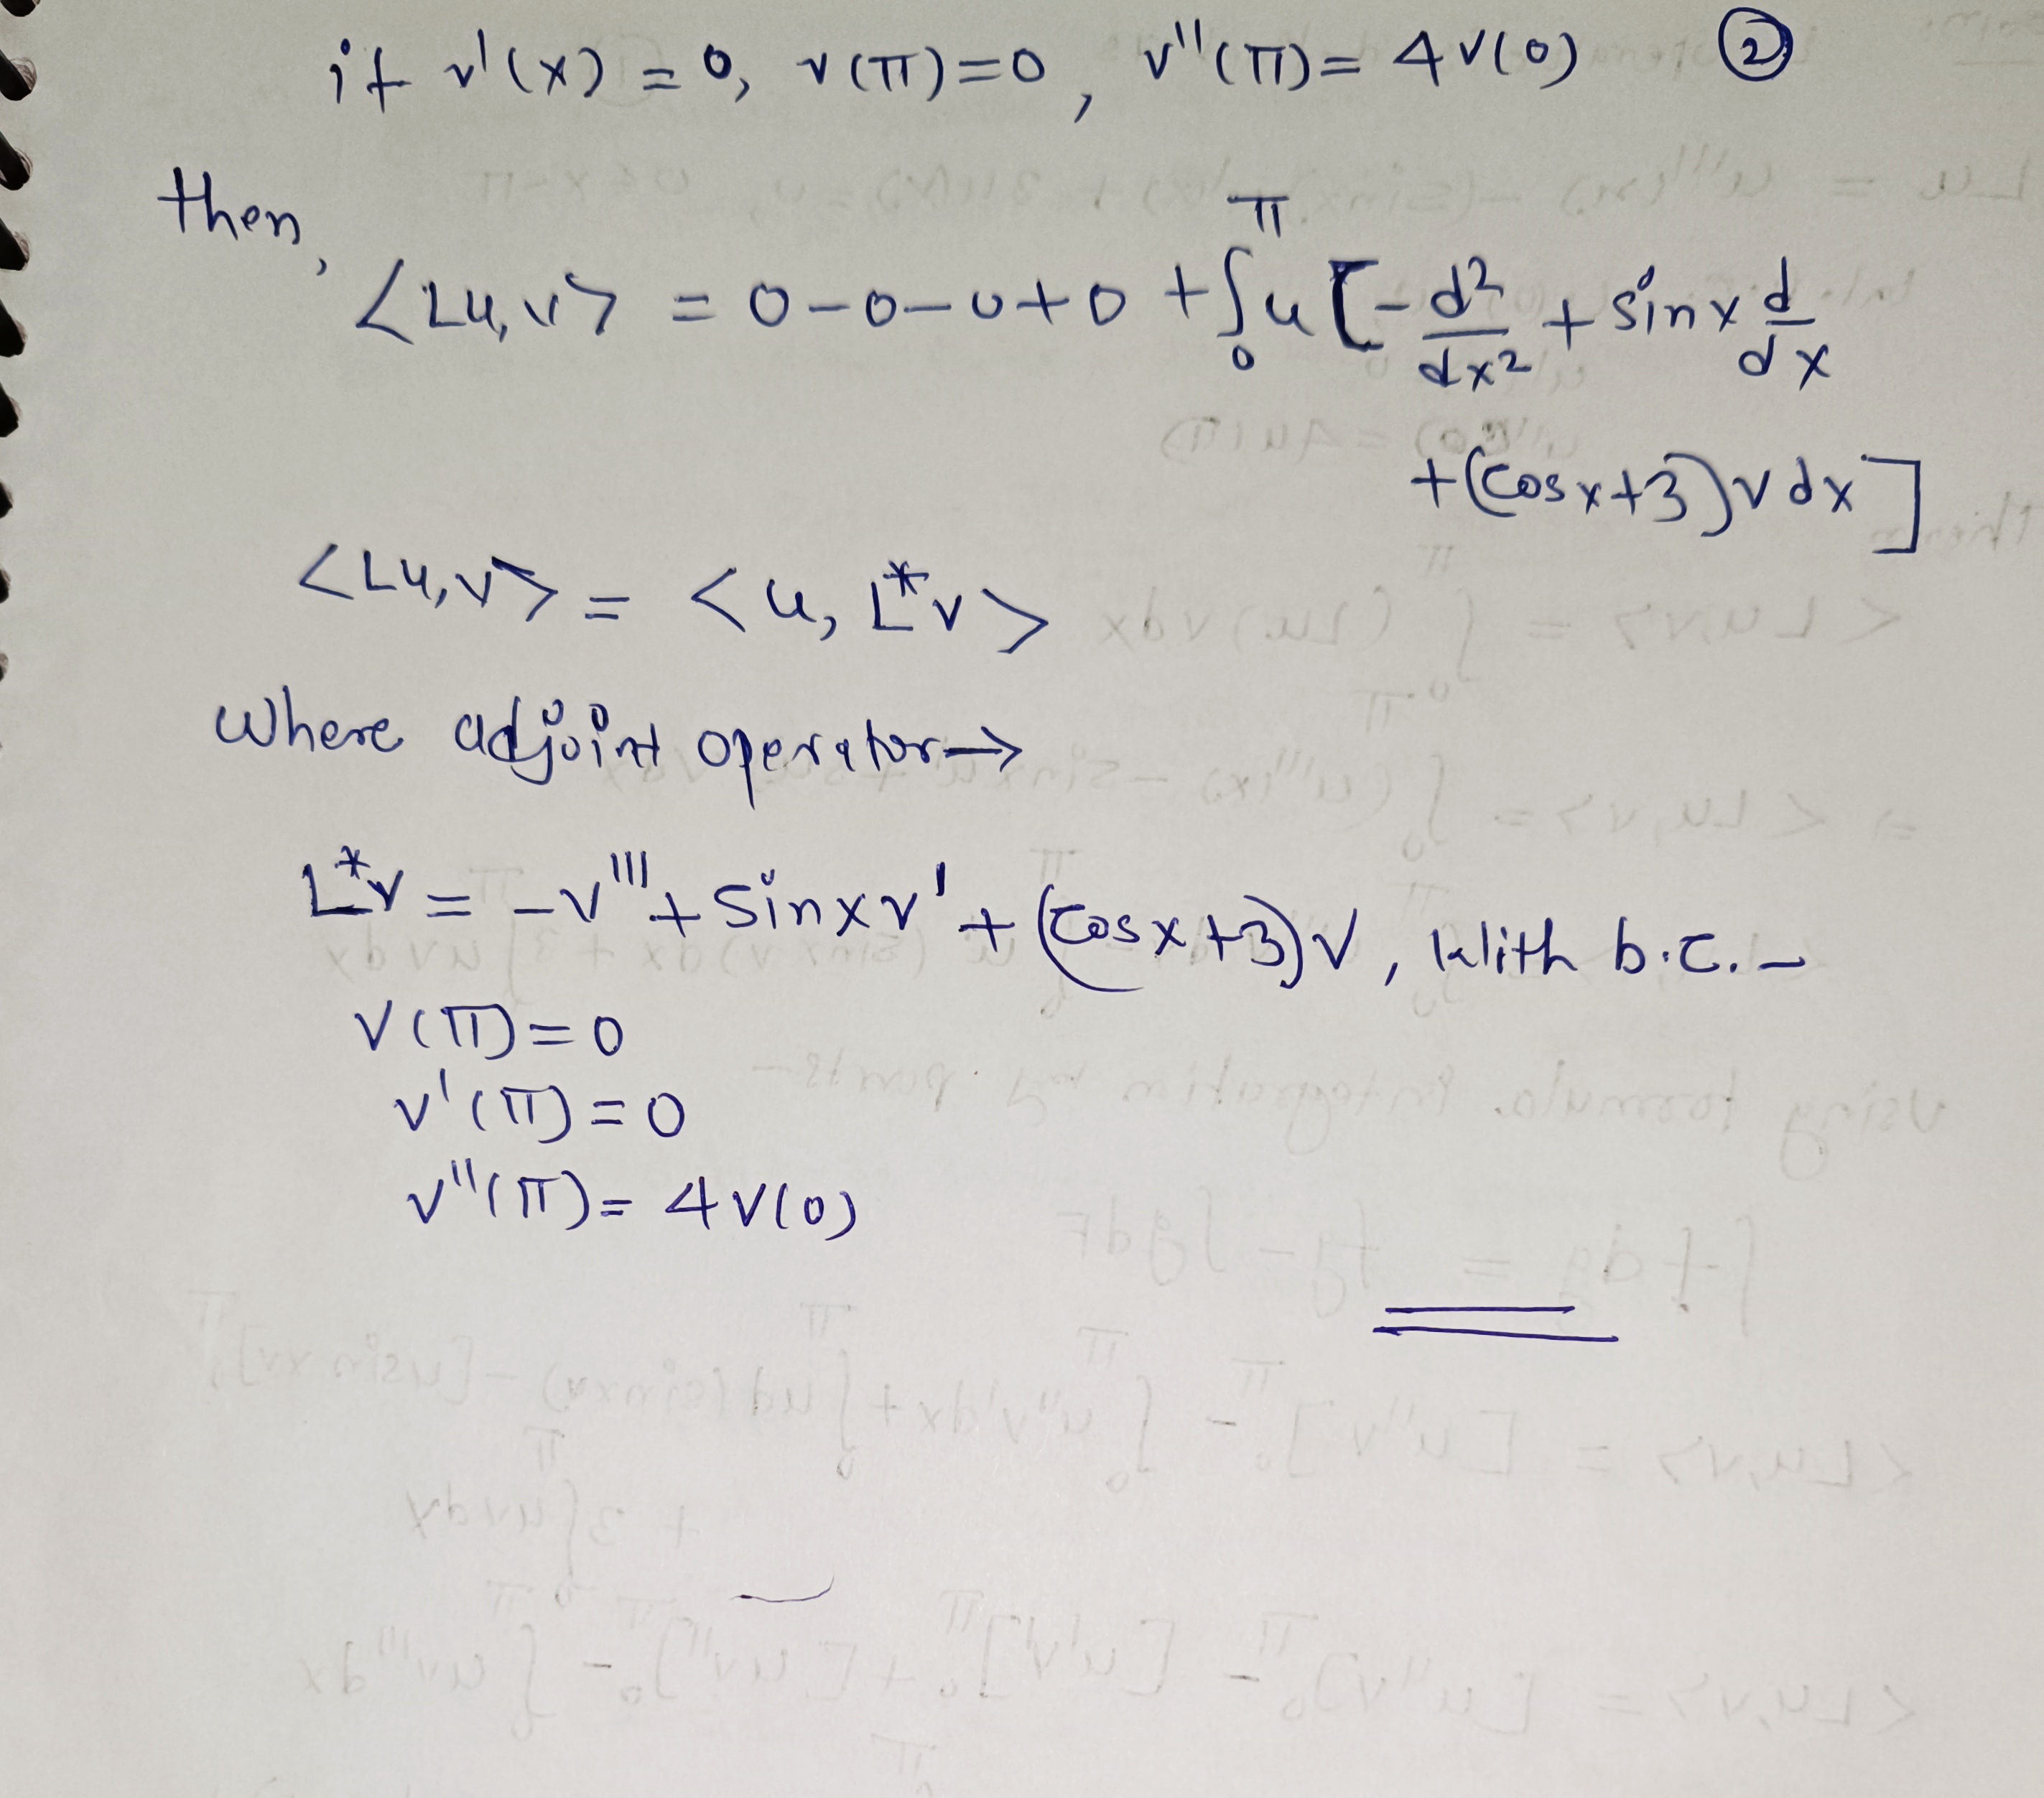 if v'(x) = 0, v(π)=0, v''(π)= 4v(0) ②
then,
<Lu,v> = 0-0-0+0 + ∫₀^π u [-d²/dx² + sinx d/dx
+(cosx+3)vdx]
<Lu,v> = <u, L*v>
where adjoint operator→
L*v = -v''' + sinxv' + (cosx+3)v, With b.c. -
v(π)=0
v'(π)=0
v''(π)= 4v(0)